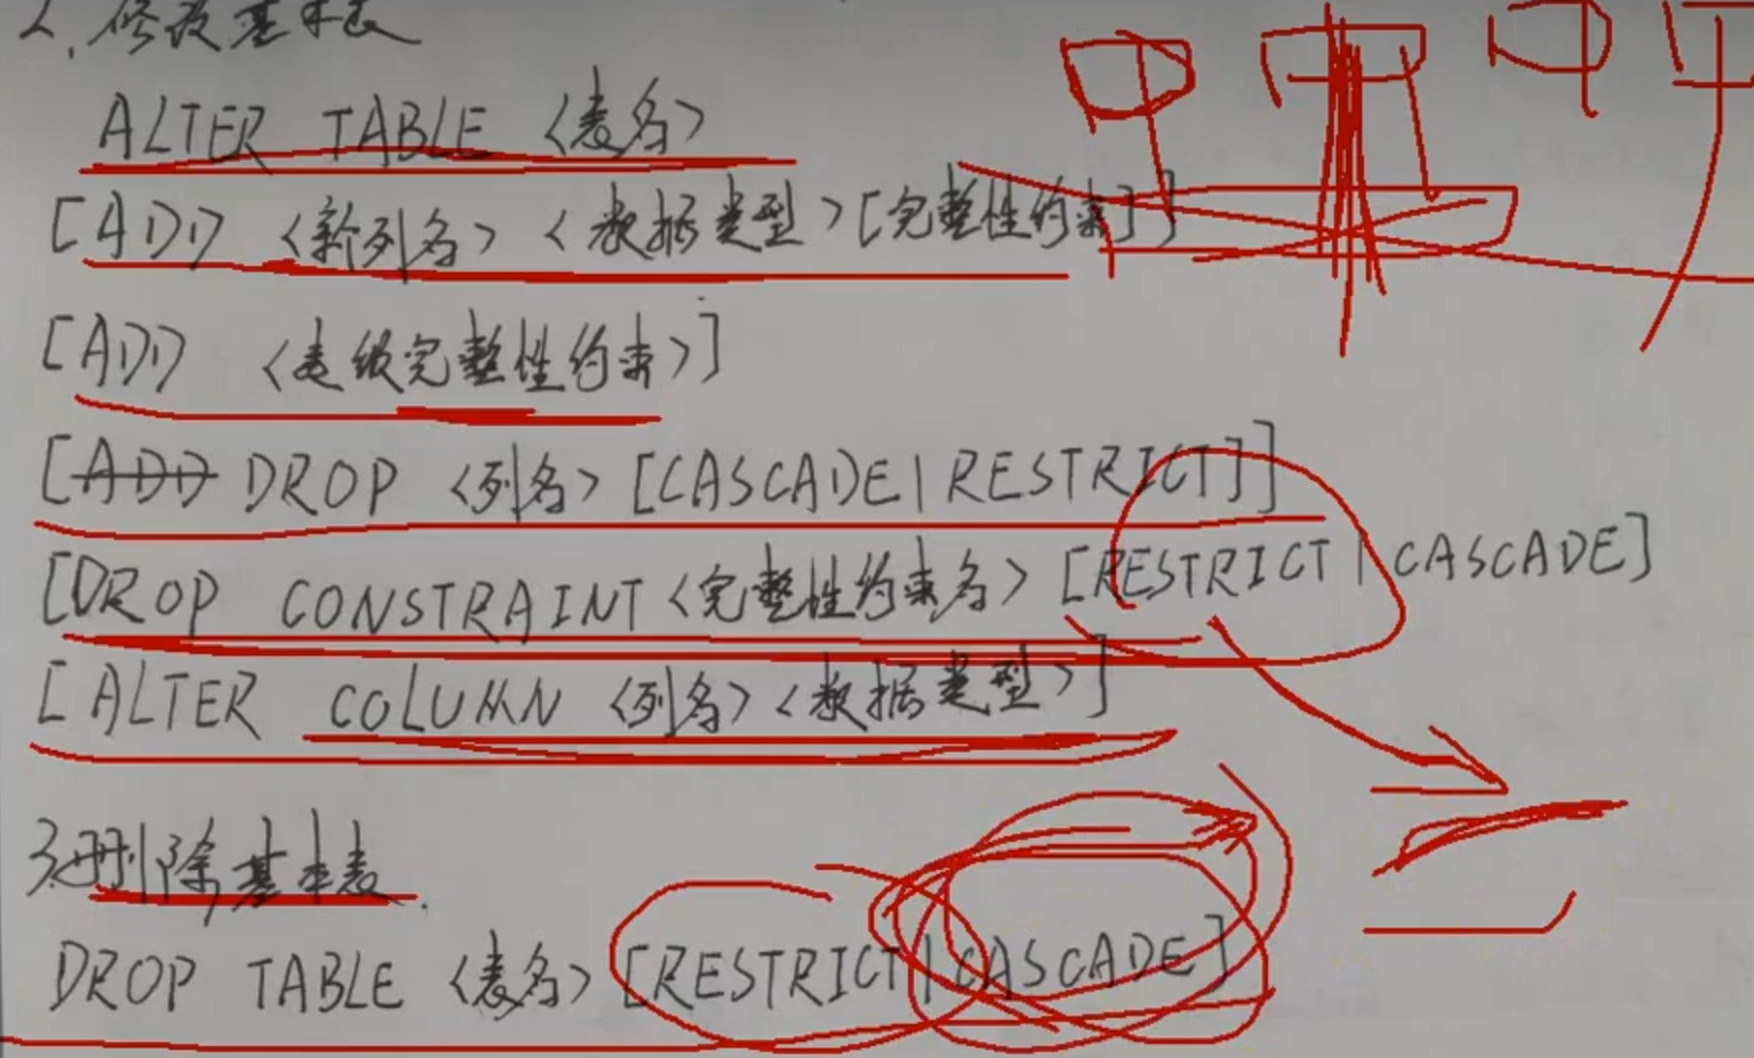 2. 修改基本表
ALTER TABLE <表名>
[ADD <新列名> <数据类型> [完整性约束]]
[ADD <表级完整性约束>]
[ADD DROP <列名> [CASCADE|RESTRICT]]
[DROP CONSTRAINT <完整性约束名> [RESTRICT|CASCADE]
[ALTER COLUMN <列名> <数据类型>]
3.删除基本表.
DROP TABLE <表名> [RESTRICT|CASCADE]